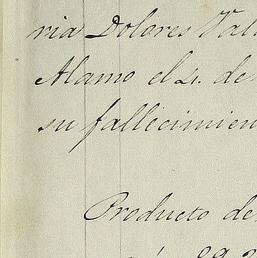 ria Dolores Vall
Alamo el 21. de
su fallecimien
Producto de